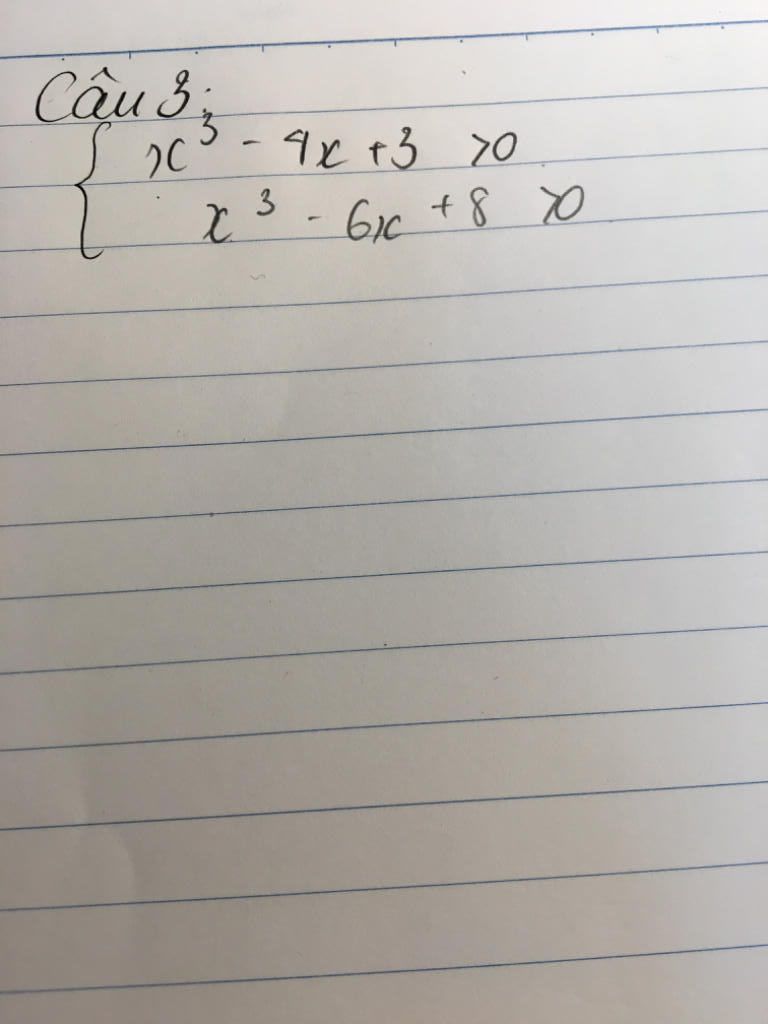 Câu 3:
x³ - 4x + 3 >0
x³ - 6x + 8 >0